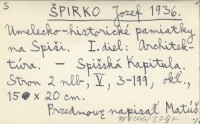 S
ŠPIRKO Jozef 1936.
Umelecko-historické pamiatky
na Spiši. I. diel: Architek-
túra. – Spišská Kapitula.
Stron 2 nlb, V, 3-199, okł.,
15 × 20 cm.
Przedmowę napisał Matúš